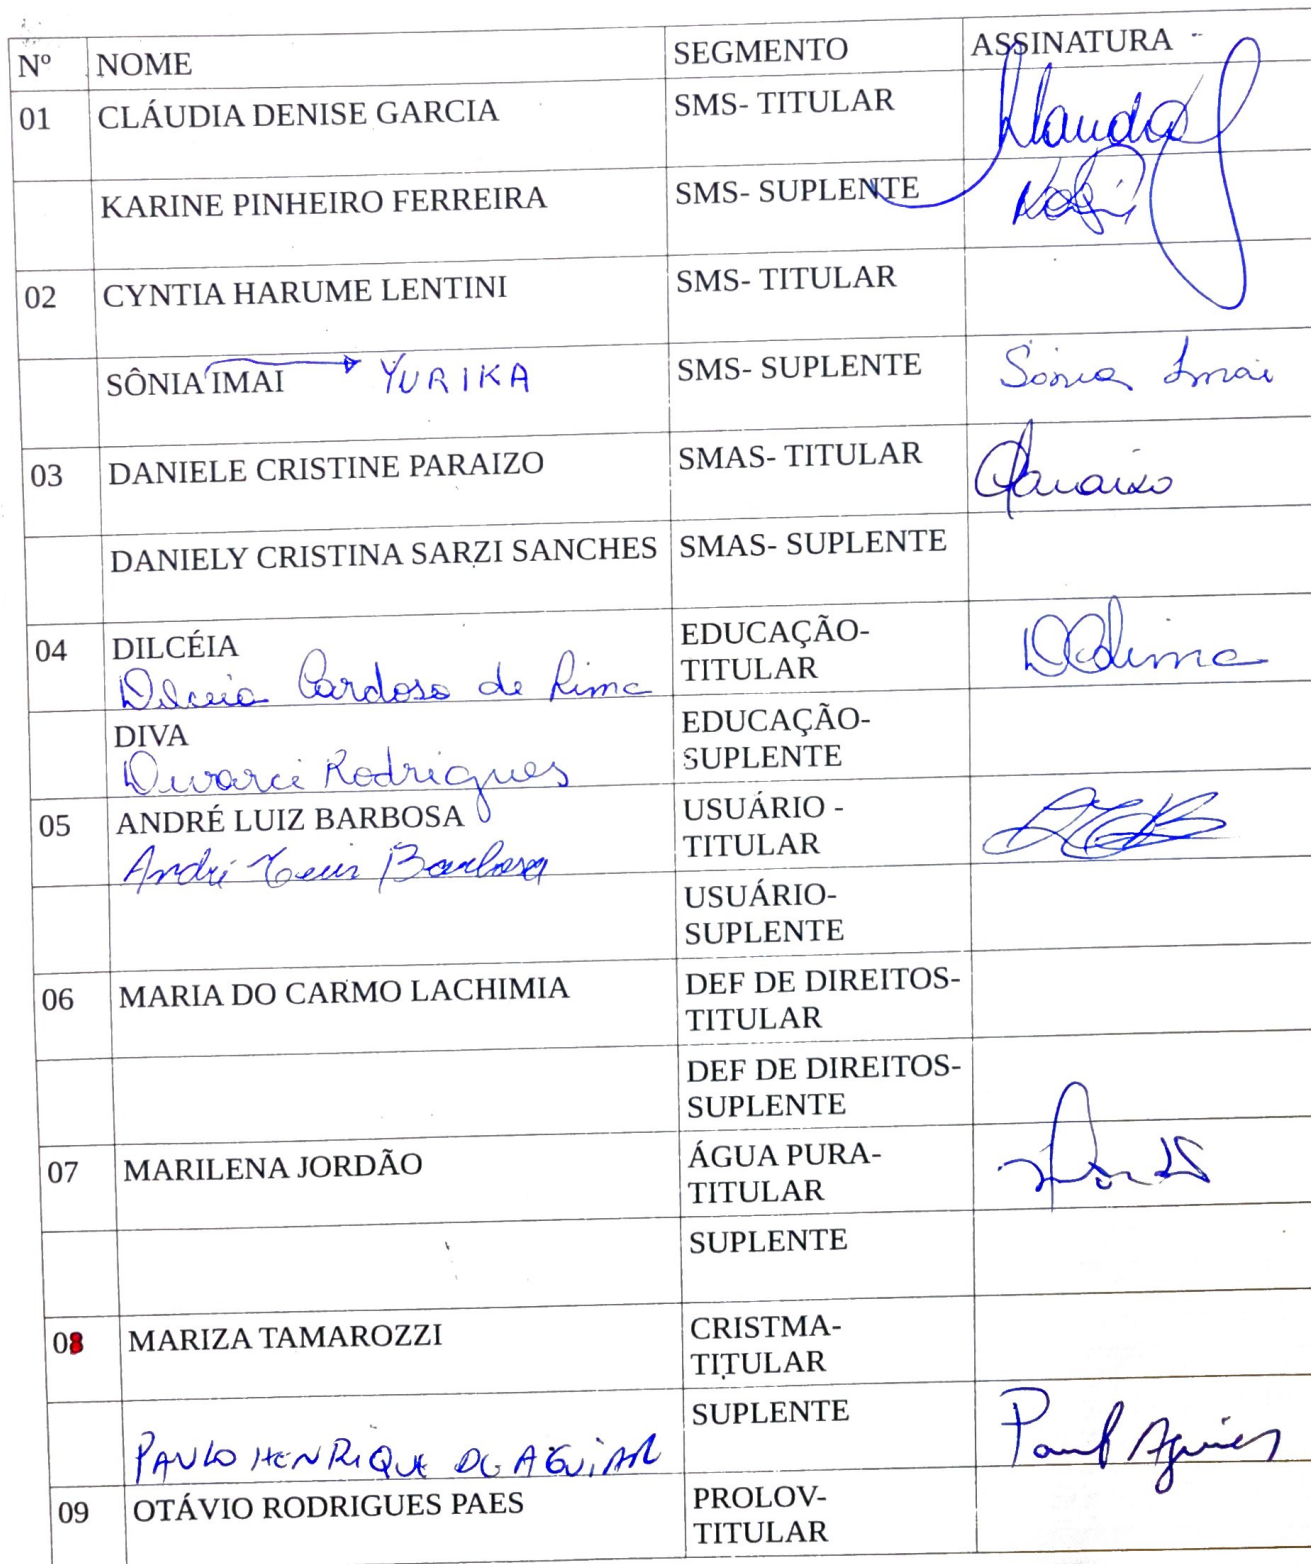 Nº NOME SEGMENTO ASSINATURA
01 CLÁUDIA DENISE GARCIA SMS- TITULAR Claudia
KARINE PINHEIRO FERREIRA SMS- SUPLENTE
02 CYNTIA HARUME LENTINI SMS- TITULAR
SÔNIA IMAI YURIKA SMS- SUPLENTE Sônia Imai
03 DANIELE CRISTINE PARAIZO SMAS- TITULAR Paraizo
DANIELY CRISTINA SARZI SANCHES SMAS- SUPLENTE
04 DILCÉIA EDUCAÇÃO-
TITULAR DCLima
Dilceia Cardoso de Lima
DIVA EDUCAÇÃO-
SUPLENTE
Divarci Rodrigues
05 ANDRÉ LUIZ BARBOSA USUÁRIO -
TITULAR
André Luis Barbosa
USUÁRIO-
SUPLENTE
06 MARIA DO CARMO LACHIMIA DEF DE DIREITOS-
TITULAR
DEF DE DIREITOS-
SUPLENTE
07 MARILENA JORDÃO ÁGUA PURA-
TITULAR
SUPLENTE
08 MARIZA TAMAROZZI CRISTMA-
TITULAR
SUPLENTE
PAULO HENRIQUE DE AGUIAR
09 OTÁVIO RODRIGUES PAES PROLOV-
TITULAR